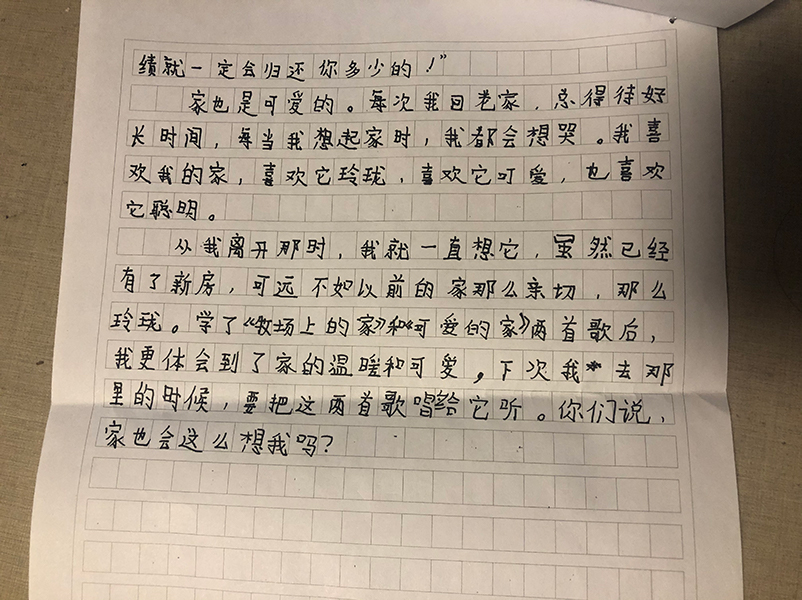 绩就一定会归还你多少的！”
家也是可爱的。每次我回老家，总得待好
长时间，每当我想起家时，我都会想哭。我喜
欢我的家，喜欢它玲珑，喜欢它可爱，也喜欢
它聪明。
从我离开那时，我就一直想它，虽然已经
有了新房，可远不如以前的家那么亲切，那么
玲珑。学了《牧场上的家》和《可爱的家》两首歌后，
我更体会到了家的温暖和可爱，下次我去那
里的时候，要把这两首歌唱给它听。你们说，
家也会这么想我吗？